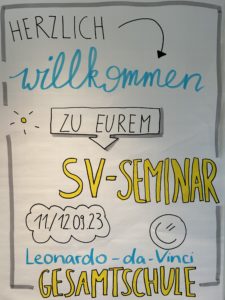 HERZLICH
willkommen
ZU EUREM
SV-SEMINAR
11/12.09.23
Leonardo-da-Vinci
GESAMTSCHULE